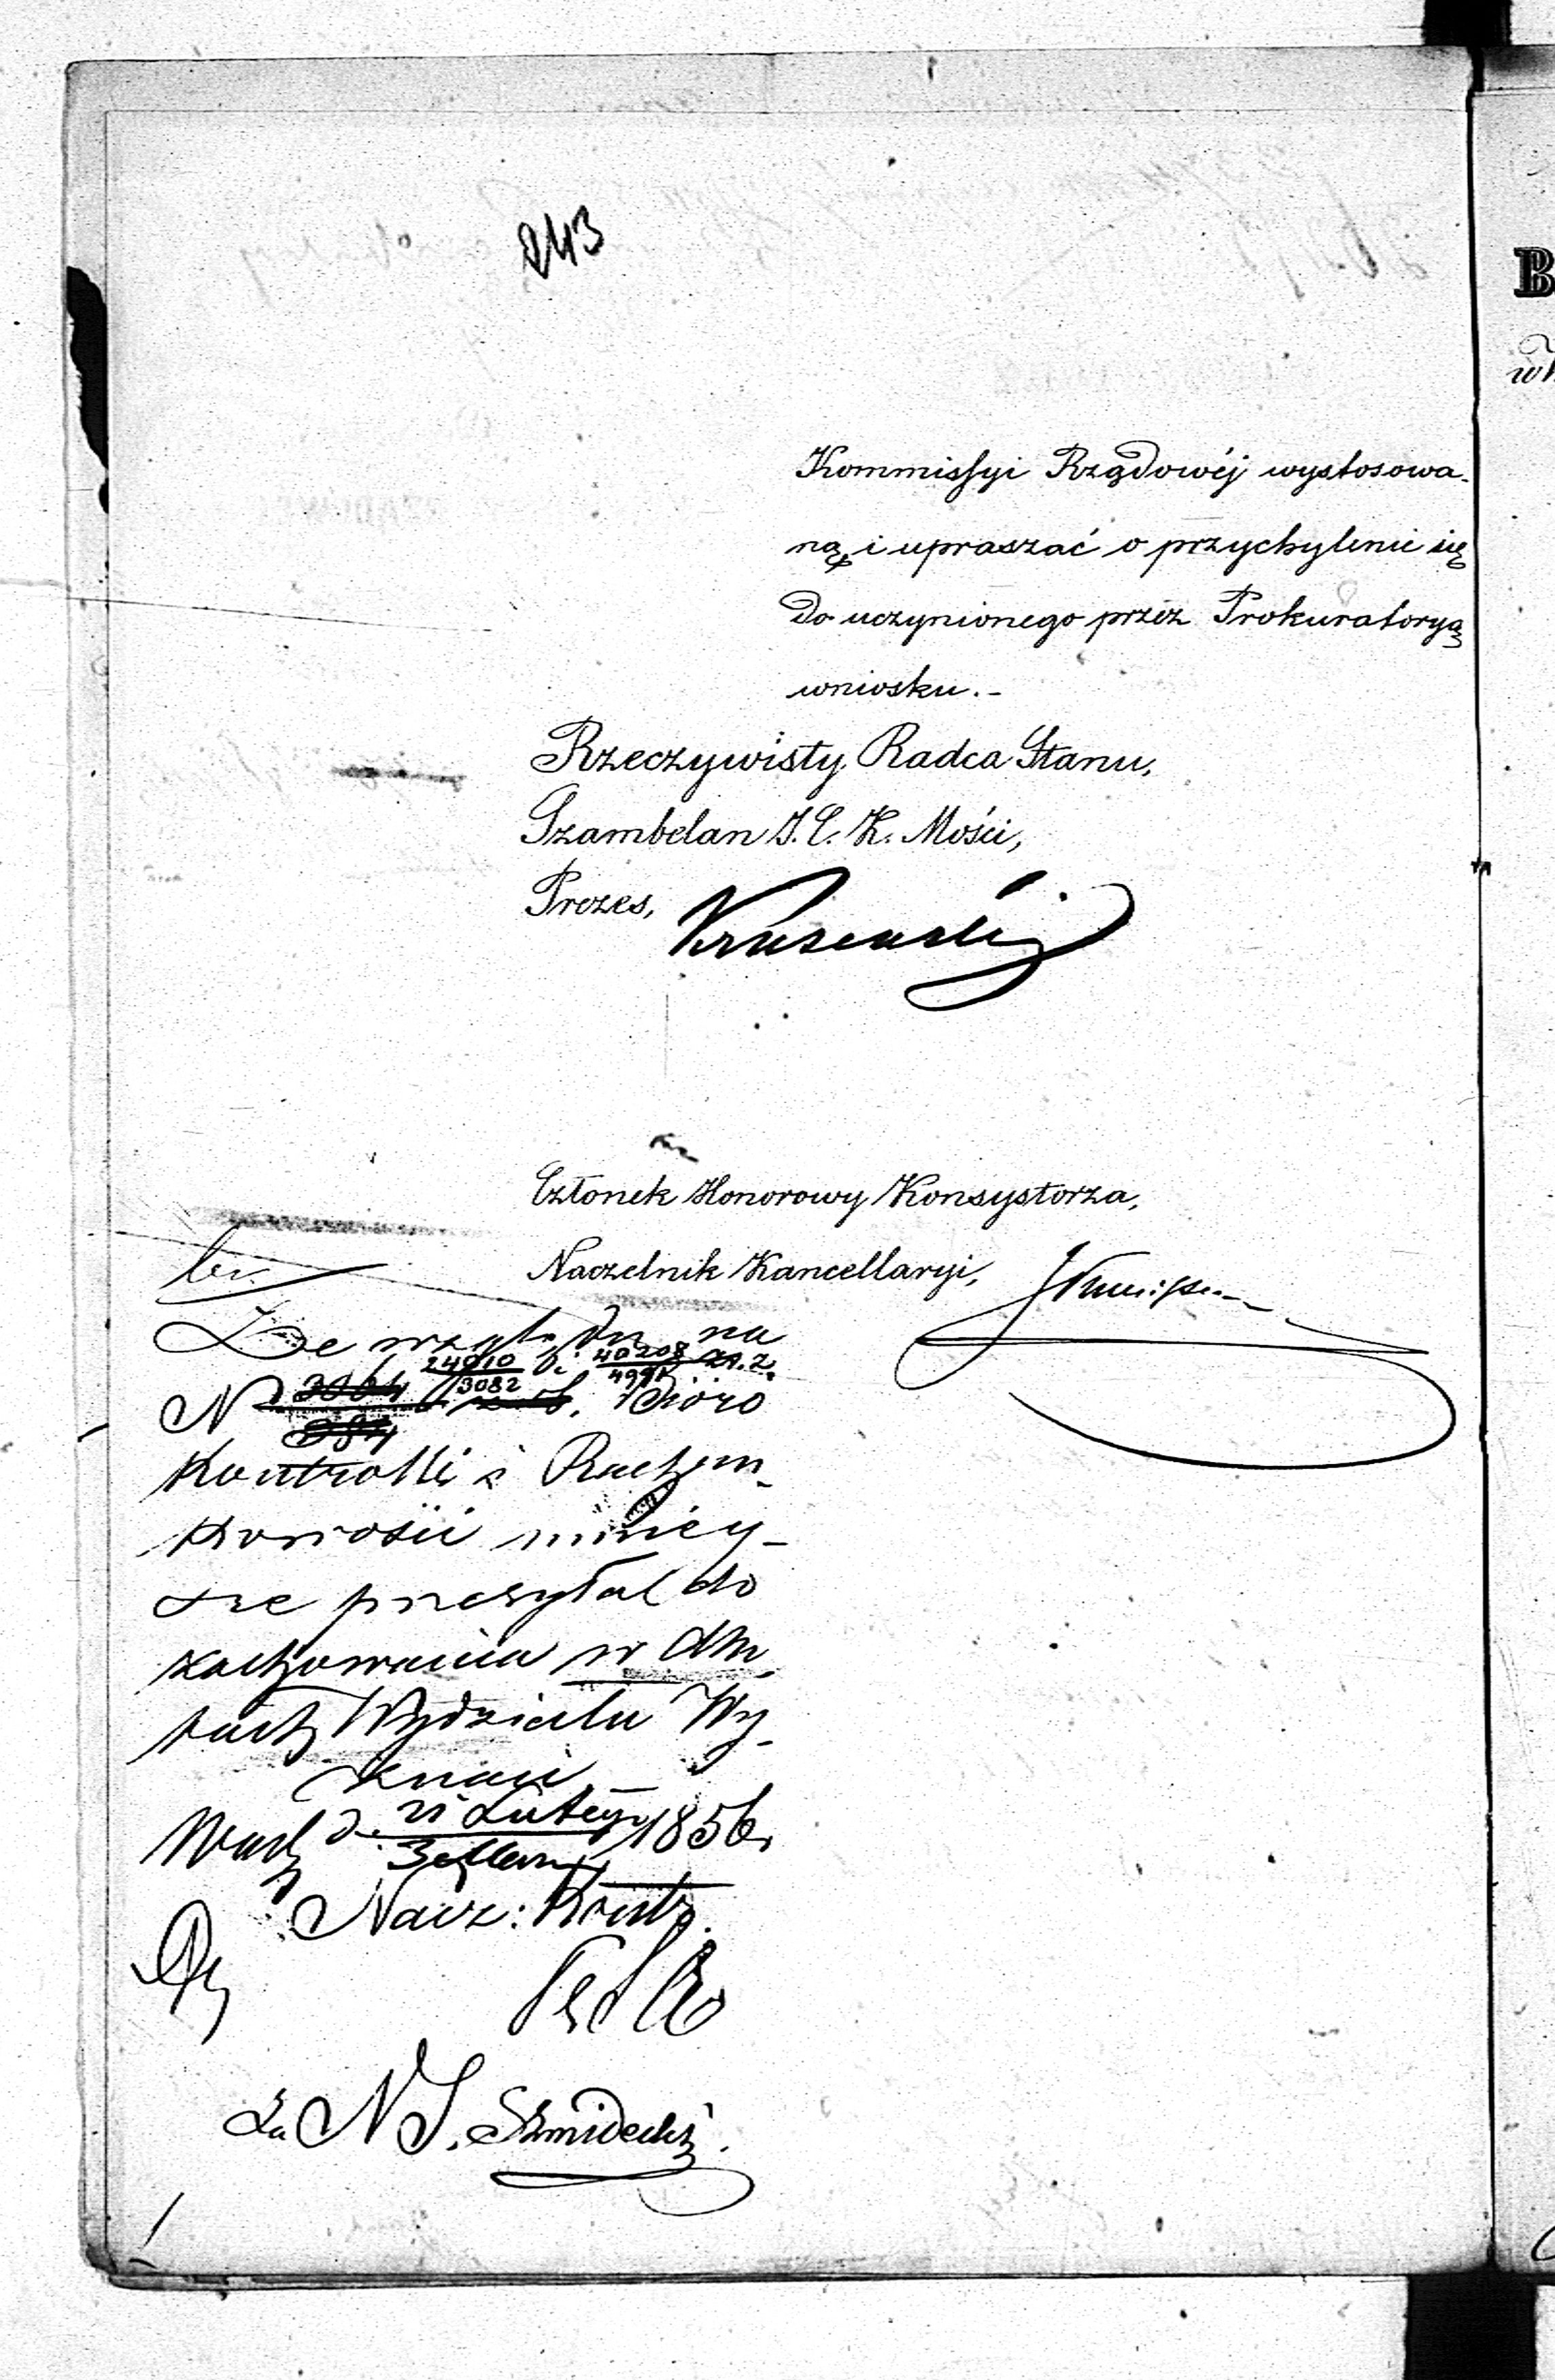 243
Kommissyi Rządowéj wystosowa-
ną, i upraszać o przychylenie się
do uczynionego przez Prokuratoryą
wniosku.-
Rzeczywisty Radca Stanu,
Szambelan J. C. K. Mości,
Prezes,
Członek Honorowy Konsystorza,
Naczelnik Kancellaryi,
Ze względu na
24010 40208
N 3082 Bióro
Kontrolli i Rachun-
kowości niniey-
sze przesyłał do
zachowania w Ak-
tach Wydziału Wy-
znań.-
Warsz d. Lutego 1856 r.
3
Nacz: Kontr.
Za N S. Szmidecki.